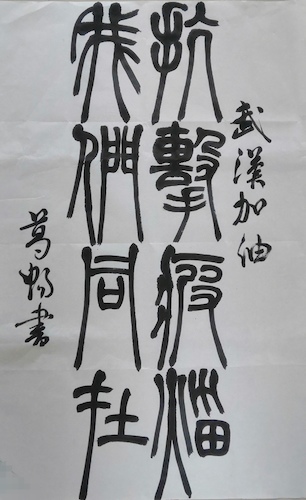 武漢加油
抗擊疫
我們同在
葛書